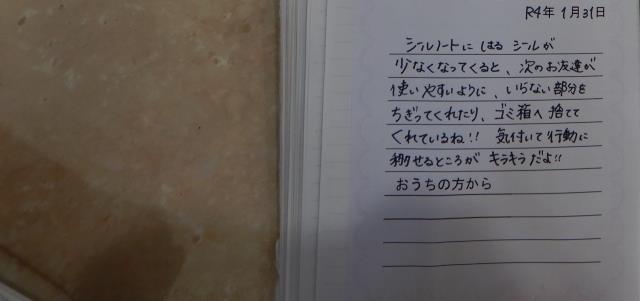 R4年 1月31日
シールノートに はる シールが
少なくなってくると、次のお友達が
使いやすいように、いらない部分を
ちぎってくれたり、ゴミ箱へ捨てて
くれているね!! 気付いて行動に
移せるところが キラキラだよ!!
おうちの方から